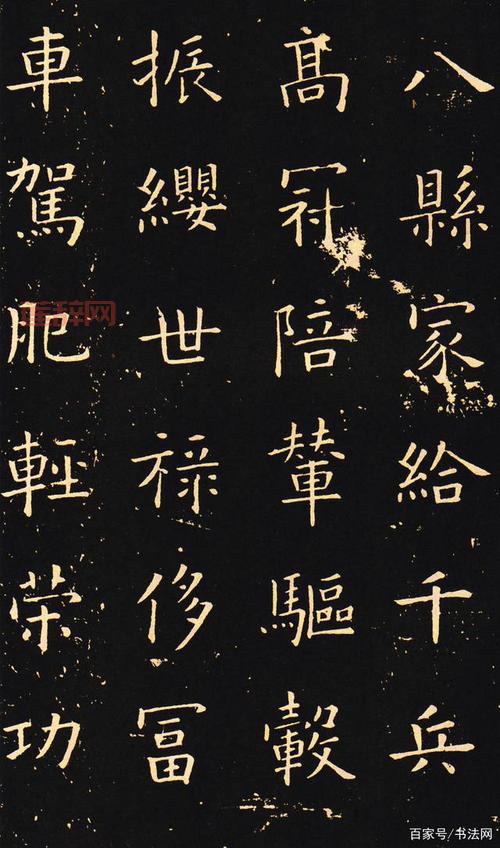 八縣家給千兵
髙冠陪輦驅轂
振纓世禄侈冨
車駕肥輕策功
百家号/书法网